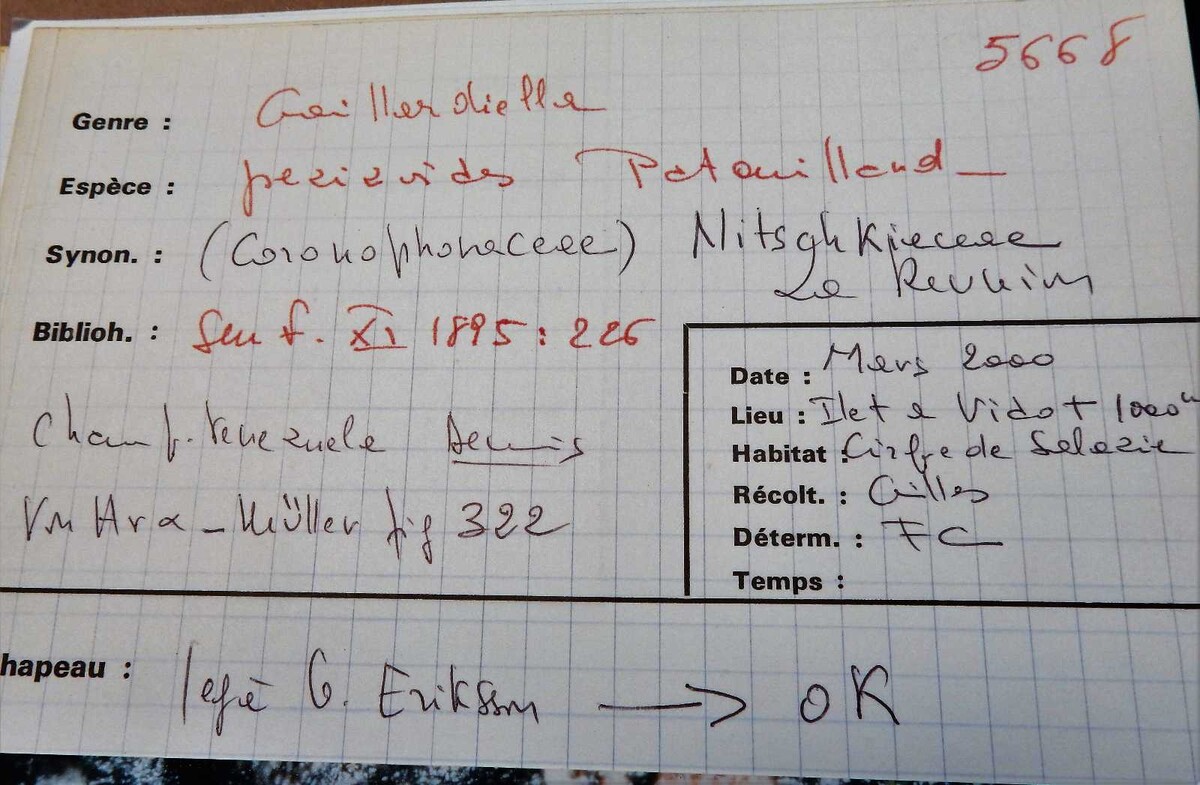 5668
Genre : Gaillardiella
Espèce : pezizoides Patouillard
Synon. : (Coronophoraceae) Nitschkiaceae
La Réunion
Biblioh. : 1895 : 226
Champ. Venezuela Dennis
Von Arx - Müller fig 322
Date : Mars 2000
Lieu : Ilet à Vidot 1000m
Habitat : Cirque de Salazie
Récolt. : Gilles
Déterm. : FC
Temps :
hapeau : G. Eriksson → OK